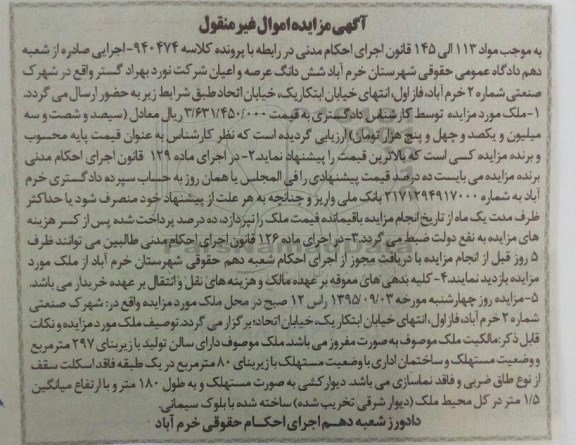 آگهی مزایده اموال غیر منقول
به موجب مواد ۱۱۳ الی ۱۴۵ قانون اجرای احکام مدنی در رابطه با پرونده کلاسه ۹۴۰۴۷۴-اجرایی صادره از شعبه
دهم دادگاه عمومی حقوقی شهرستان خرم آباد شش دانگ عرصه و اعیان شرکت نورد بهراد گستر واقع در شهرک
صنعتی شماره ۲ خرم آباد، فاز اول، انتهای خیابان ابتکار یک، خیابان اتحاد طبق شرایط زیر به حضور ارسال می گردد.
۱-ملک مورد مزایده توسط کارشناس دادگستری به قیمت ۳/۶۳۱/۴۵۰/۰۰۰ ریال معادل (سیصد و شصت و سه
میلیون و یکصد و چهل و پنج هزار تومان) ارزیابی گردیده است که نظر کارشناس به عنوان قیمت پایه محسوب
و برنده مزایده کسی است که بالاترین قیمت را پیشنهاد نماید.۲-در اجرای ماده ۱۲۹ قانون اجرای احکام مدنی
برنده مزایده می بایست ده درصد قیمت پیشنهادی را فی المجلس یا همان روز به حساب سپرده دادگستری خرم
آباد به شماره ۲۱۷۱۲۹۴۹۱۷۰۰۰ بانک ملی واریز و چنانچه به هر علت از پیشنهاد خود منصرف شود یا حداکثر
ظرف مدت یک ماه از تاریخ انجام مزایده باقیمانده قیمت ملک را نپردازد، ده درصد پرداخت شده پس از کسر هزینه
های مزایده به نفع دولت ضبط می گردد.۳-در اجرای ماده ۱۲۶ قانون اجرای احکام مدنی طالبین می توانند ظرف
۵ روز قبل از انجام مزایده با دریافت مجوز از اجرای احکام شعبه دهم حقوقی شهرستان خرم آباد از ملک مورد
مزایده بازدید نمایند.۴-کلیه بدهی های معوقه بر عهده مالک و هزینه های نقل و انتقال بر عهده خریدار می باشد.
۵-مزایده روز چهارشنبه مورخه ۱۳۹۵/۰۹/۰۳ راس ۱۲ صبح در محل ملک مورد مزایده واقع در: شهرک صنعتی
شماره ۲ خرم آباد، فاز اول، انتهای خیابان ابتکار یک، خیابان اتحاد؛ برگزار می گردد. توصیف ملک مورد مزایده و نکات
قابل ذکر:مالکیت ملک موصوف به صورت مفروز می باشد. ملک موصوف دارای سالن تولید با زیربنای ۲۹۷ مترمربع
و وضعیت مستهلک و ساختمان اداری با وضعیت مستهلک با زیربنای ۸۰ مترمربع در یک طبقه فاقد اسکلت سقف
از نوع طاق ضربی و فاقد نماسازی می باشد. دیوارکشی به صورت مستهلک و به طول ۱۸۰ متر و با ارتفاع میانگین
۱/۵ متر در کل محیط ملک (دیوار شرقی تخریب شده) ساخته شده با بلوک سیمانی.
دادورز شعبه دهم اجرای احکام حقوقی خرم آباد